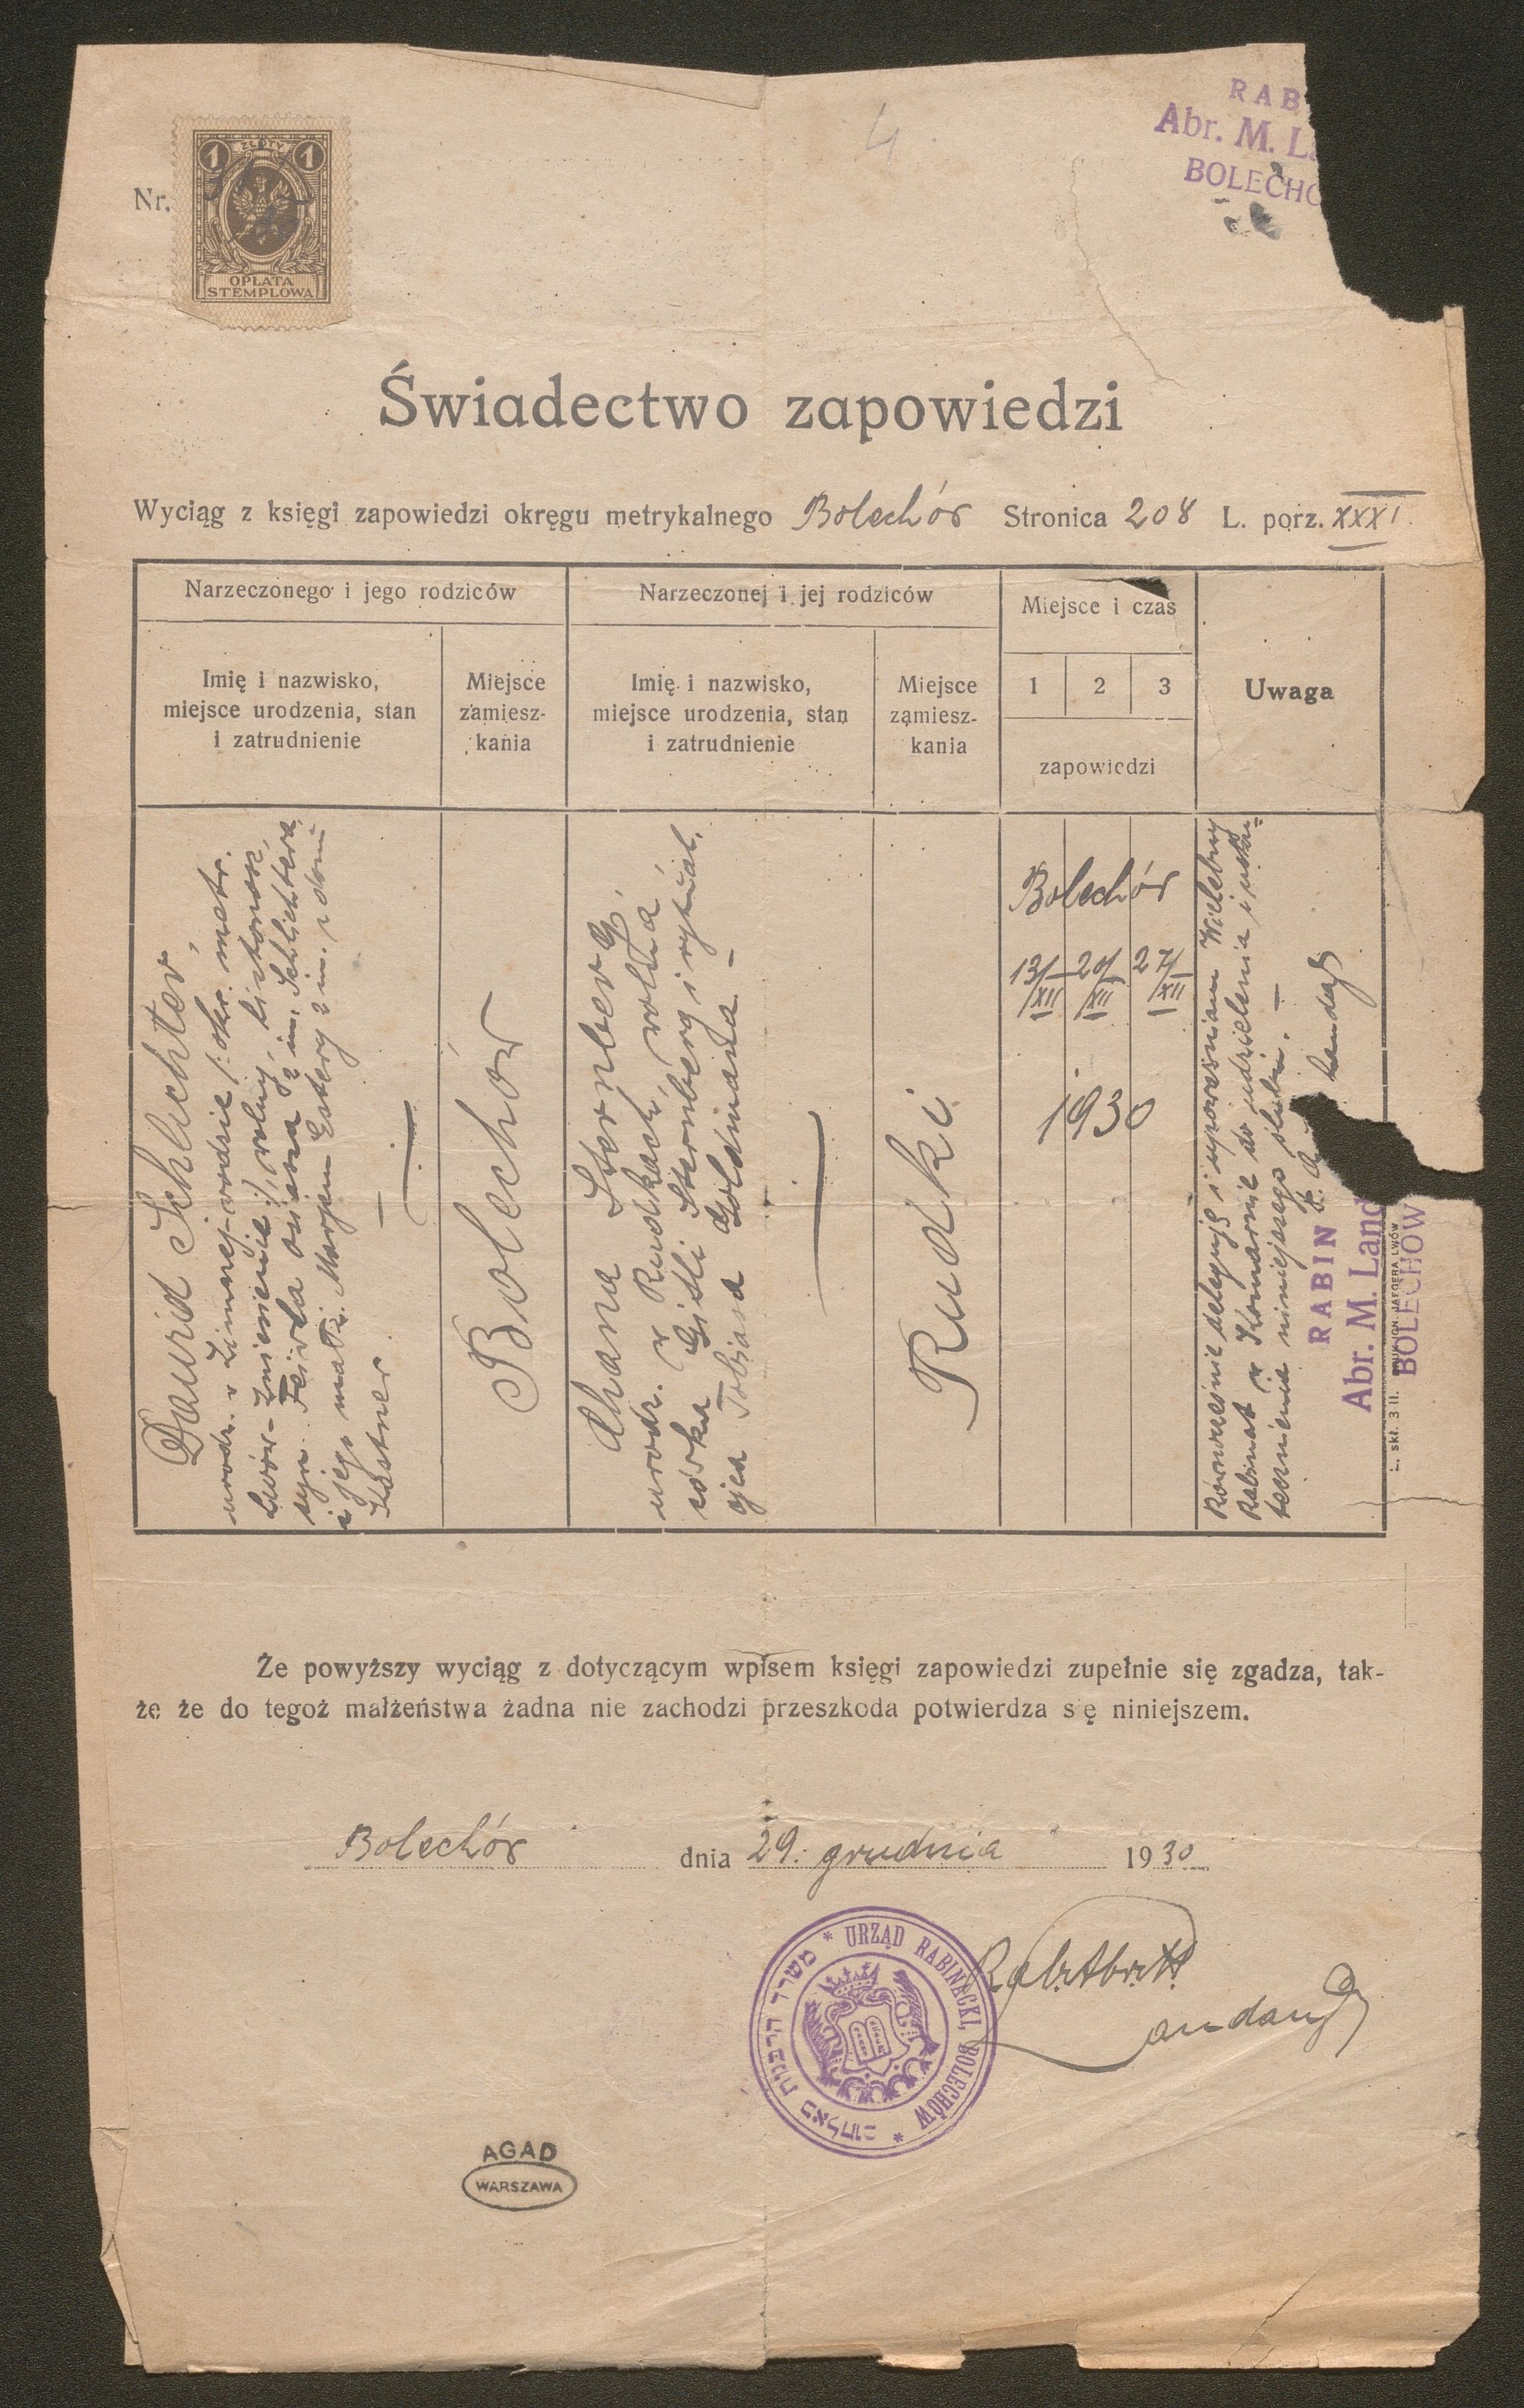 4
RAB
Abr. M. La
BOLECHO
Nr.
1 ZŁOTY 1
OPŁATA
STEMPLOWA
Świadectwo zapowiedzi
Wyciąg z księgi zapowiedzi okręgu metrykalnego Bolechów Stronica 208 L. porz. XXXI
Narzeczonego i jego rodziców
Narzeczonej i jej rodziców
Miejsce i czas
Uwaga
Imię i nazwisko,
miejsce urodzenia, stan
i zatrudnienie
Miejsce
zamiesz-
kania
Imię i nazwisko,
miejsce urodzenia, stan
i zatrudnienie
Miejsce
zamiesz-
kania
1 2 3
zapowiedzi
Dawid Schlichter,
urodz. w Zimnejwodzie /: okr. metr.
Lwów-Zniesienie :/, wolny, listonosz,
syn Feiwla Osiasa 2 im. Schlichtera,
i jego małż. Marjem Estery 2 im. z domu
Kästner
Bolechów
Chana Sternberg,
urodz. w Rudkach, wolna,
córka Gisli Sternberg i rytual.
ojca Tobiasa Goldmana
Rudki
Bolechów
13/XII 20/XII 27/XII
1930
Równocześnie deleguję i upoważniam Wielebny
Rabinat w Komarnie do udzielenia i usku=
tecznienia niniejszego ślubu.
Landau
RABIN
Abr. M. Land
BOLECHÓW
L. skł. 3 II. JAEGERA LWÓW
Że powyższy wyciąg z dotyczącym wpisem księgi zapowiedzi zupełnie się zgadza, tak-
że że do tegoż małżeństwa żadna nie zachodzi przeszkoda potwierdza się niniejszem.
Bolechów dnia 29. grudnia 1930
* URZĄD RABINACKI, BOLECHÓW *
משרד הרבנות באלחוב
Landau
AGAD
WARSZAWA